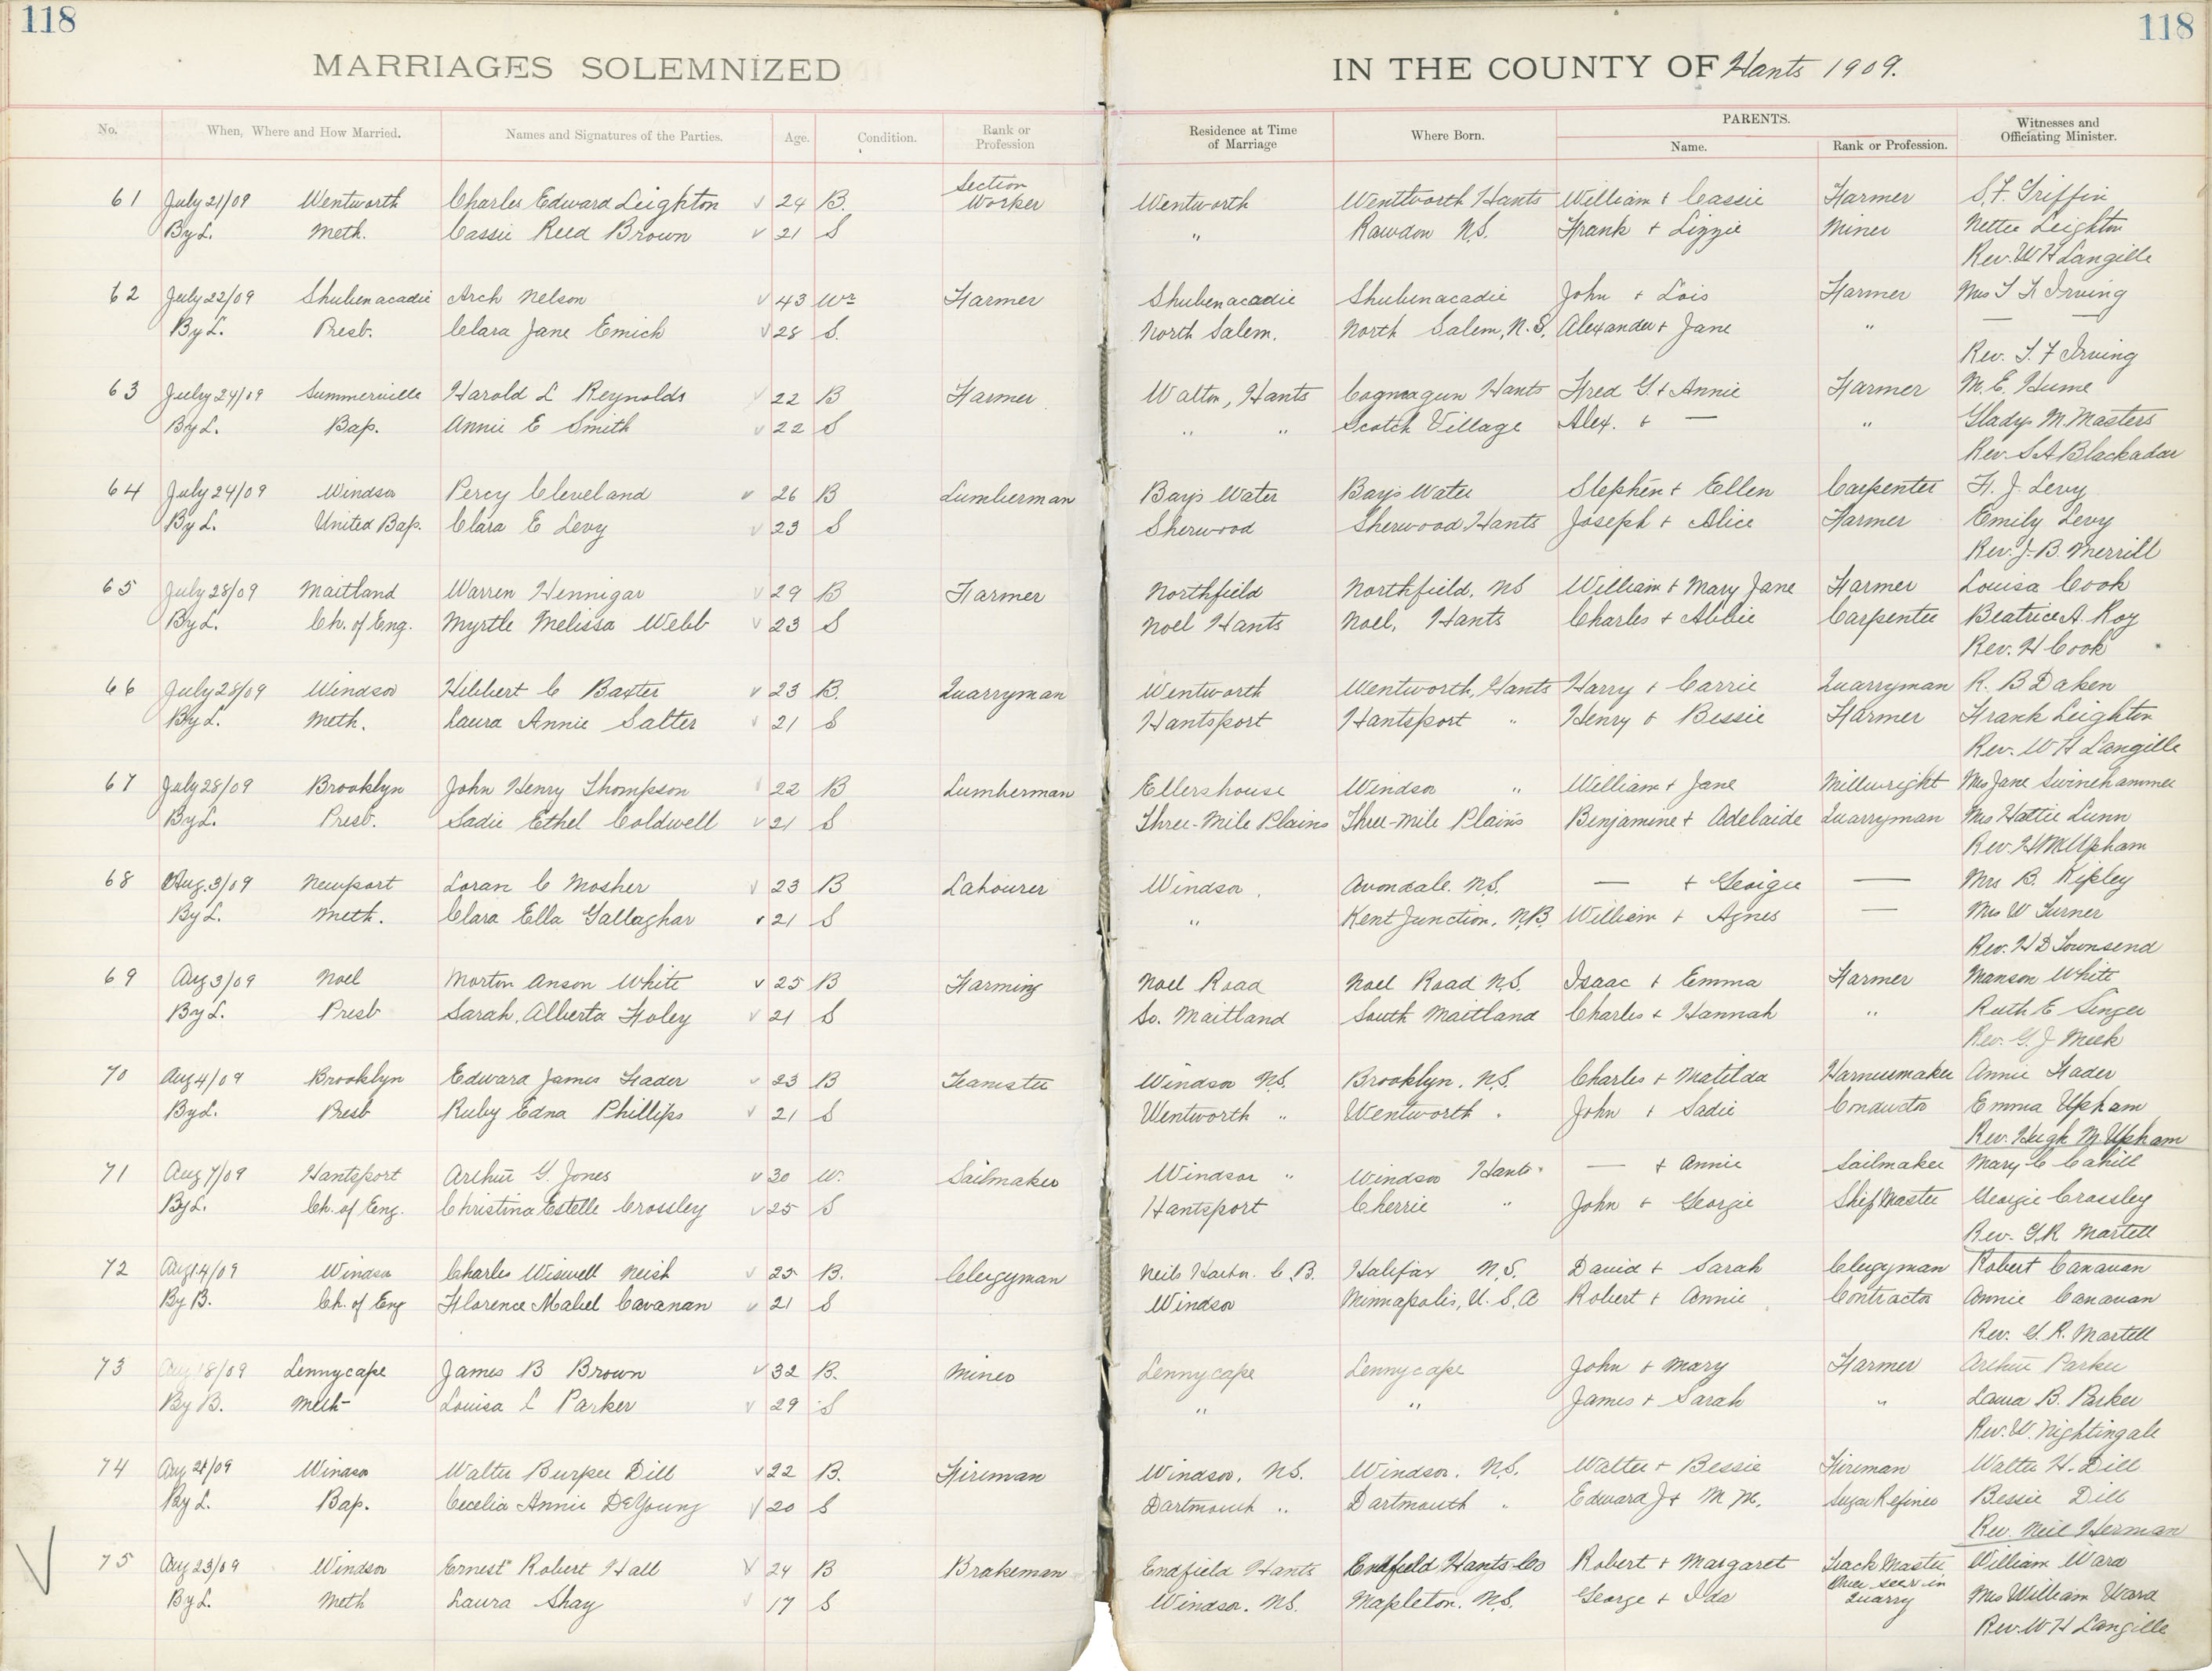 118
118
MARRIAGES SOLEMNIZED IN THE COUNTY OF Hants 1909.
No. When, Where and How Married. Names and Signatures of the Parties. Age. Condition. Rank or Profession Residence at Time of Marriage Where Born. PARENTS. Name. Rank or Profession. Witnesses and Officiating Minister.
61 July 21/09 Wentworth Charles Edward Leighton 24 B. Section Worker Wentworth Wentworth Hants William + Cassie Farmer S. F. Griffin
By L. Meth. Cassie Reed Brown 21 S " Rawdon N.S. Frank + Lizzie Miner Nettie Leighton
Rev. W H Langille
62 July 22/09 Shubenacadie Arch Nelson 43 Wr Farmer Shubenacadie Shubenacadie John + Lois Farmer Mrs T F Irving
By L. Presb. Clara Jane Emich 28 S. North Salem. North Salem, N.S. Alexander + Jane " — —
Rev. T. F Irving
63 July 24/09 Summerville Harold L Reynolds 22 B Farmer Walton, Hants Cogmagun Hants Fred G. + Annie Farmer M. E. Hume
By L. Bap. Annie E Smith 22 S " " Scotch Village Alex. + — " Gladys M. Masters
Rev. S A Blackadar
64 July 24/09 Windsor Percy Cleveland 26 B Lumberman Bay's Water Bay's Water Stephen + Ellen Carpenter F. J. Levy
By L. United Bap. Clara E Levy 23 S Sherwood Sherwood Hants Joseph + Alice Farmer Emily Levy
Rev. J. B. Merrill
65 July 28/09 Maitland Warren Hennigar 29 B Farmer Northfield Northfield, NS William + Mary Jane Farmer Louisa Cook
By L. Ch. of Eng. Myrtle Melissa Webb 23 S Noel Hants Noel, Hants Charles + Abbie Carpenter Beatrice A. Roy
Rev. H Cook
66 July 28/09 Windsor Hibbert C Baxter 23 B. Quarryman Wentworth Wentworth, Hants Harry + Carrie Quarryman R. B Daken
By L. Meth. Laura Annie Salter 21 S Hantsport Hantsport " Henry & Bessie Farmer Frank Leighton
Rev. W H Langille
67 July 28/09 Brooklyn John Henry Thompson 22 B Lumberman Ellershouse Windsor " William + Jane Millwright Mrs Jane Swinehammer
By L. Presb. Sadie Ethel Coldwell 21 S Three-Mile Plains Three-Mile Plains Binjamine + Adelaide Quarryman Mrs Hattie Lunn
Rev. H M Upham
68 Aug. 3/09 Newport Loran C Mosher 23 B Labourer Windsor. Avondale. N.S. — + Georgie — Mrs B. Ripley
By L. Meth. Clara Ella Gallaghar 21 S " Kent Junction, N.B. William + Agnes — Mrs W Turner
Rev. H D Townsend
69 Aug 3/09 Noel Morton Anson White 25 B Farming Noel Road Noel Road N.S. Isaac + Emma Farmer Manson White
By L. Presb Sarah Alberta Foley 21 S So. Maitland South Maitland Charles + Hannah " Ruth E Singer
Rev. G. J Meek
70 Aug 4/09 Brooklyn Edward James Fader 23 B Teamster Windsor N.S. Brooklyn. N.S. Charles + Matilda Harnessmaker Annie Fader
By L. Presb Ruby Edna Phillips 21 S Wentworth " Wentworth " John + Sadie Conductor Emma Upham
Rev. Hugh M. Upham
71 Aug 7/09 Hantsport Arthur G. Jones 30 W. Sailmaker Windsor " Windsor Hants. — + Annie Sailmaker Mary C Cahill
By L. Ch. of Eng. Christina Estelle Crossley 25 S Hantsport Cherrie " John + Georgie Ship Master Georgie Crossley
Rev. G. R Martell
72 Aug 14/09 Windsor Charles Wiswell Neish 25 B. Clergyman Neils Harbor. C.B. Halifax N.S. David + Sarah Clergyman Robert Canavan
By B. Ch. of Eng Florence Mabel Cavanan 21 S Windsor Minnapolis, U.S.A Robert + Annie Contractor Annie Canavan
Rev. G. R. Martell
73 Aug 18/09 Lennycape James B Brown 32 B. Miner Lennycape Lennycape John + Mary Farmer Arthur Parker
By B. Meth Louisa C Parker 29 S " " James + Sarah " Laura B. Parker
Rev. W. Nightingale
74 Aug 21/09 Windsor Walter Burpee Dill 22 B. Fireman Windsor, N.S. Windsor, N.S. Walter + Bessie Fireman Walter H. Dill
By L. Bap. Cecelia Annie DeYoung 20 S Dartmouth " Dartmouth " Edward J + M. M. Sugar Refiner Bessie Dill
Rev. Neil Herman
75 Aug 23/09 Windsor Ernest Robert Hall 24 B Brakeman Enfield Hants Enfield Hants Co Robert + Margaret Track Master William Ward
By L. Meth Laura Shay 17 S Windsor. N.S. Mapleton. N.S. George + Ida in Quarry Mrs William Ward
Rev. W H Langille